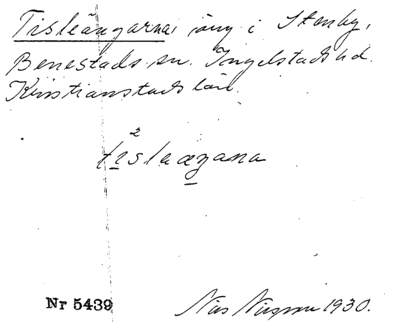 Tisleängarna, äng i Stenby,
Benestads sn. Ingelstads hd.
Kristianstads län.
2
tislaæŋana
Nr 5439
Nils Nilsson 1930.